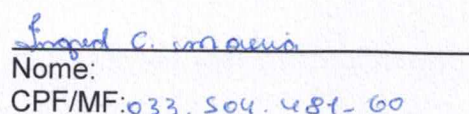 Ingrid C. Moura
Nome:
CPF/MF:033.504.481-60